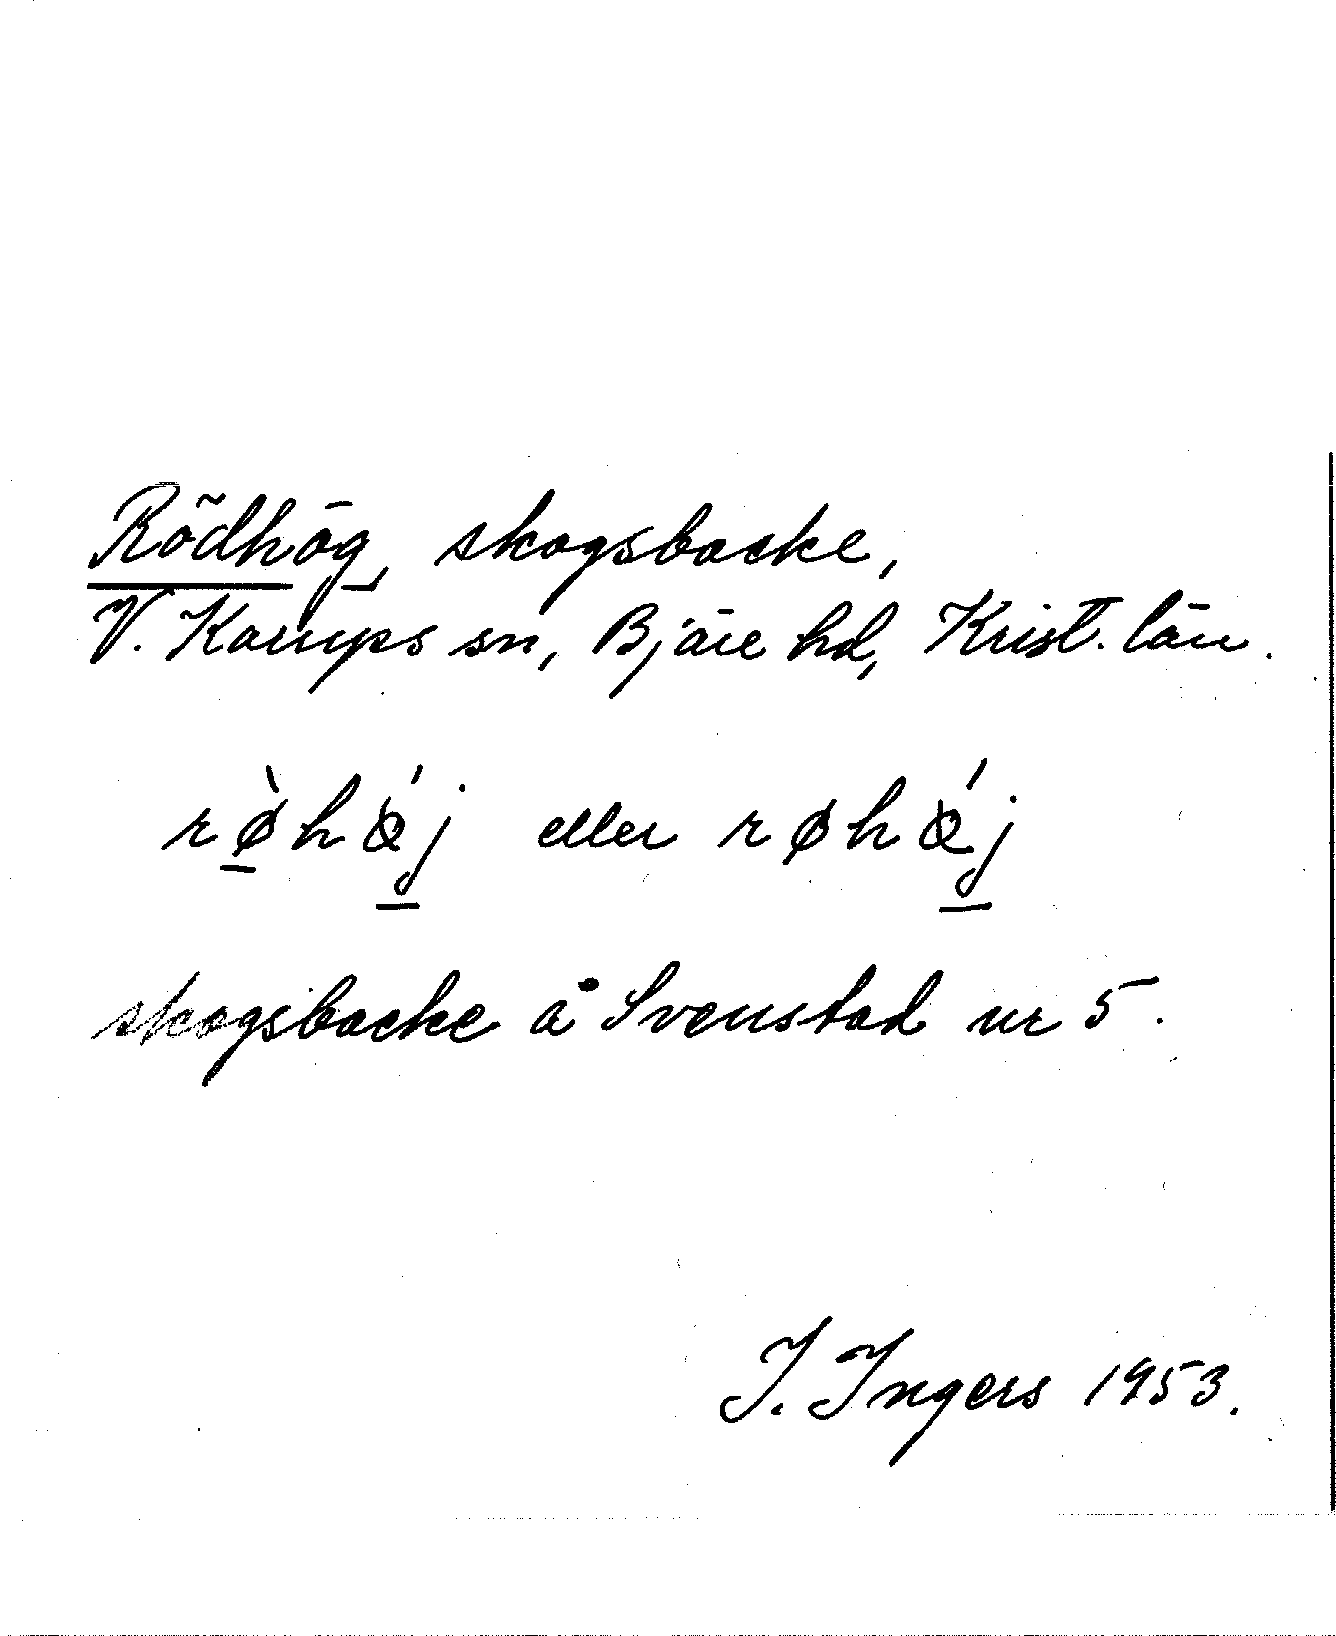 Rödhög, skogsbacke,
V. Karups sn, Bjäre hd, Krist. län.
rø̱̀hœ́j̱ eller røhœ́j̱
skogsbacke å Svenstad nr 5.
I. Ingers 1953.